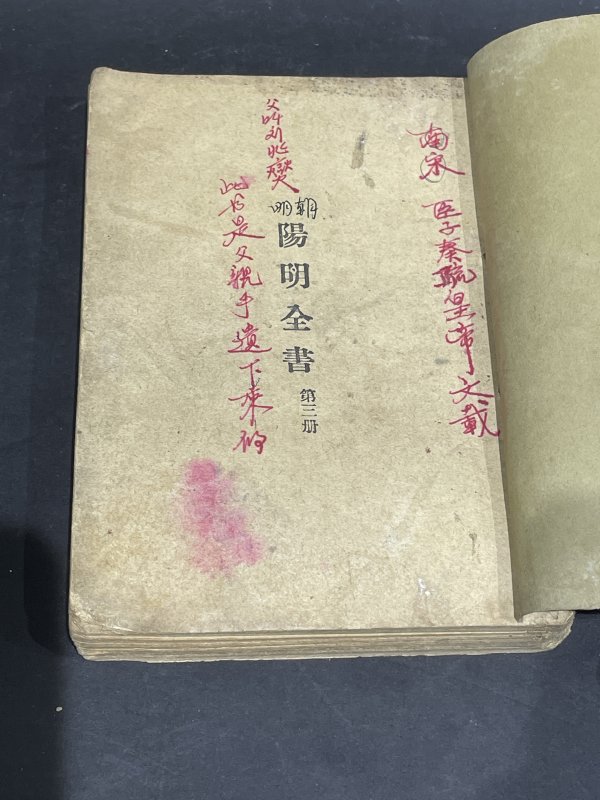 南宋 臣子奏疏皇帝文載
明朝
陽明全書 第三册
父叫刘兆燮
此书是父親手遺下来的